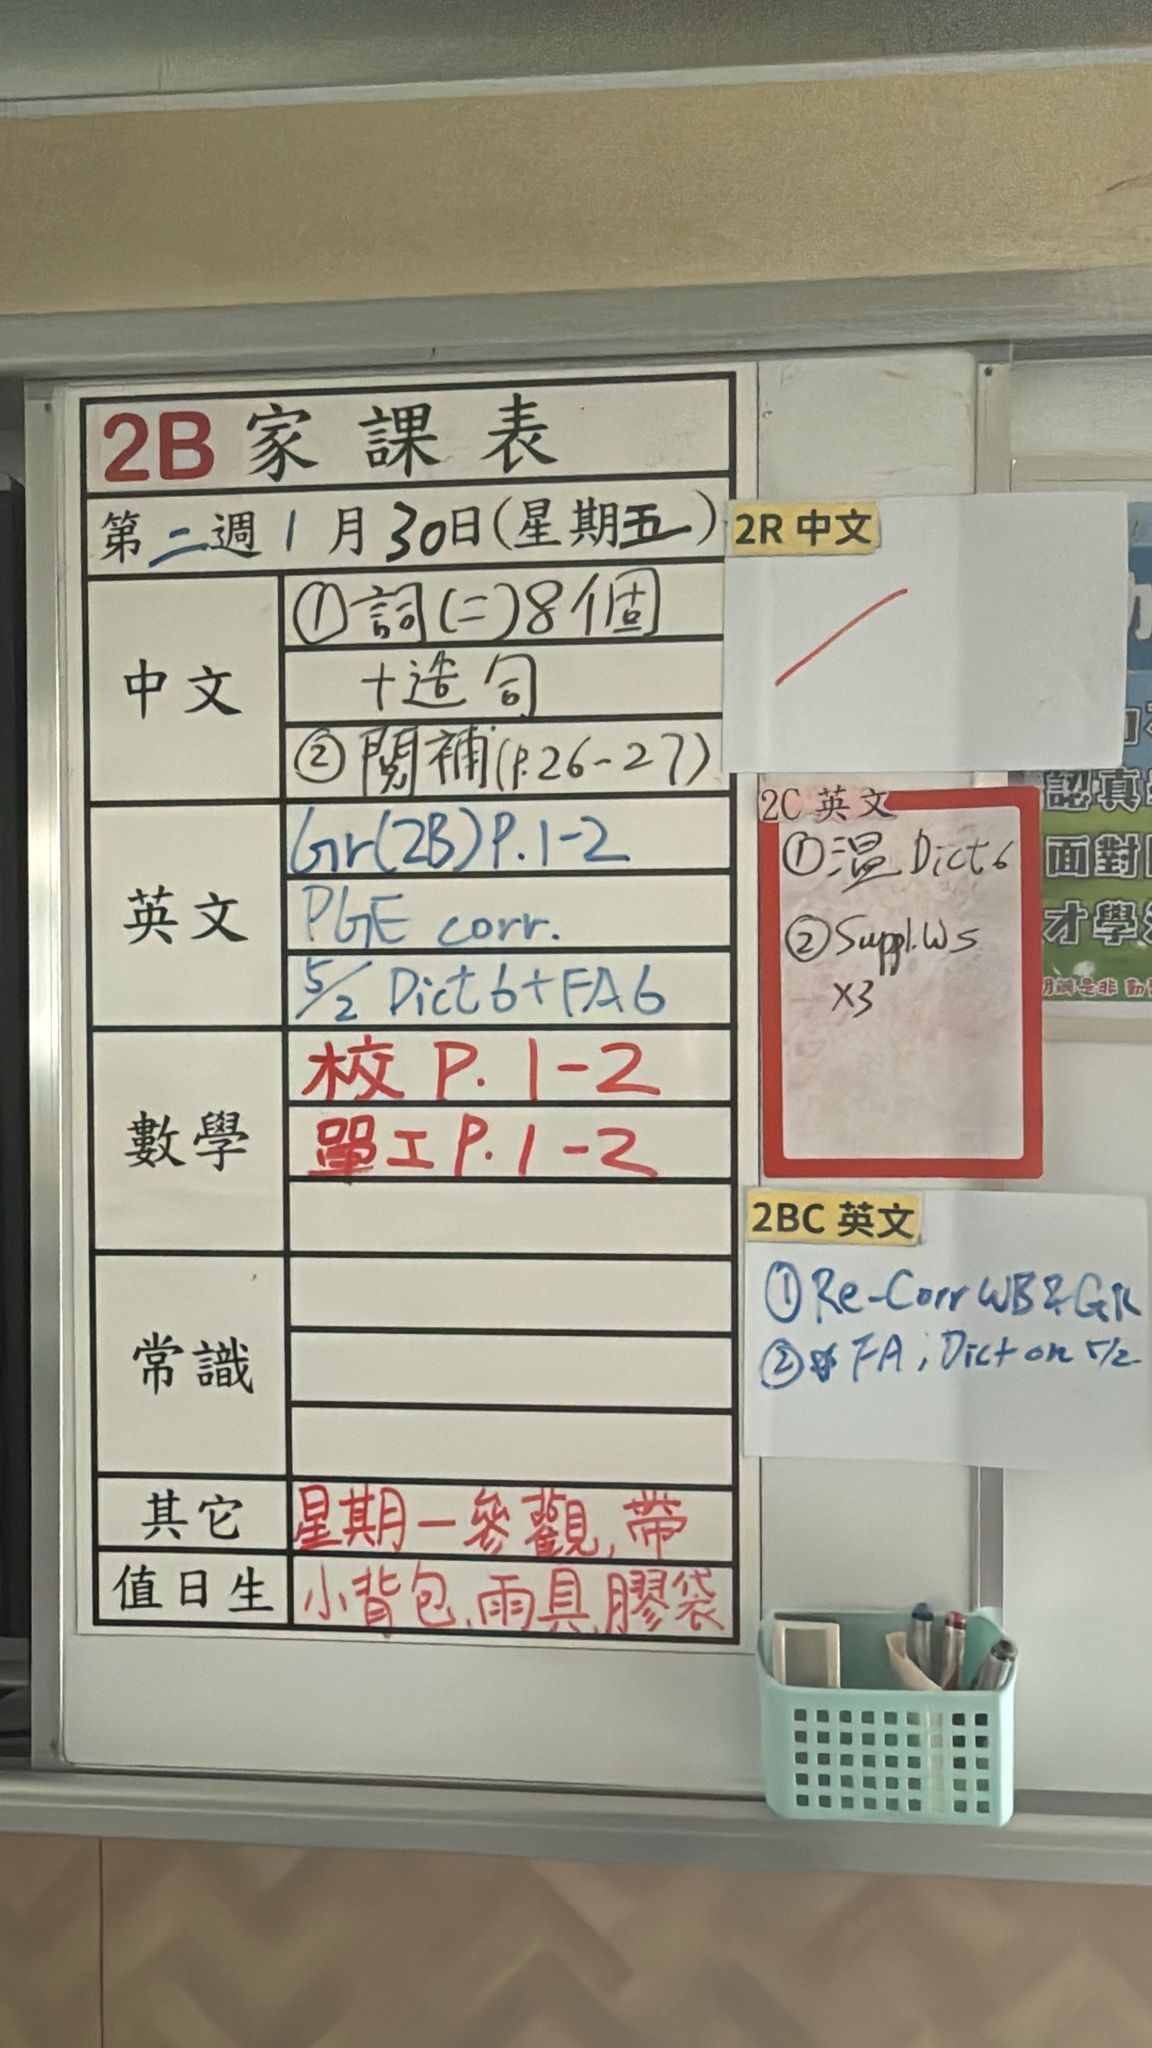 2B 家課表
第二週 1月30日(星期五)
中文
①詞(二)8個
+造句
②閱補(P.26-27)
英文
Gr(2B) P.1-2
PGE corr.
5/2 Dict 6 + FA 6
數學
校 P. 1-2
單工 P. 1-2
常識
其它
星期一參觀,帶
值日生
小背包,雨具,膠袋
2R 中文
2C 英文
①溫 Dict 6
②Suppl. WS
X3
2BC 英文
①Re-Corr WB & GR
②FA; Dict on 5/2
認真
面對
才學